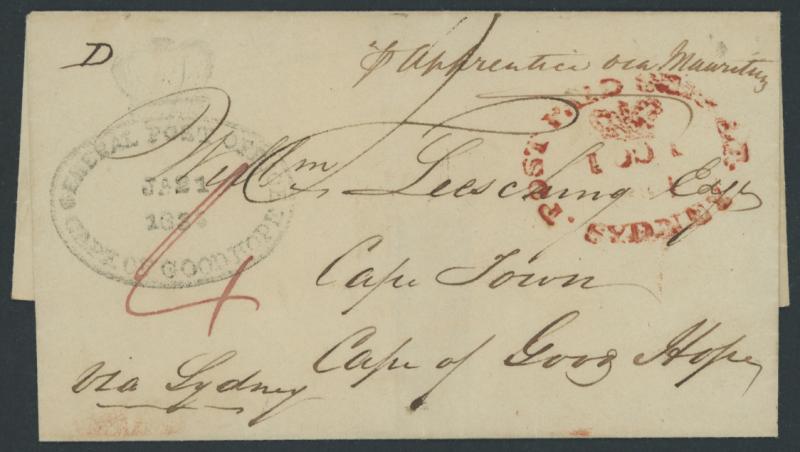 D
⅌ Apprentice via Mauritius
GENERAL POST OFFICE
JA 21
183
CAPE OF GOOD HOPE
POST PAID
SYDNEY
Will^m Leesching Esq^r
4
Cape Town
Cape of Good Hope
via Sydney